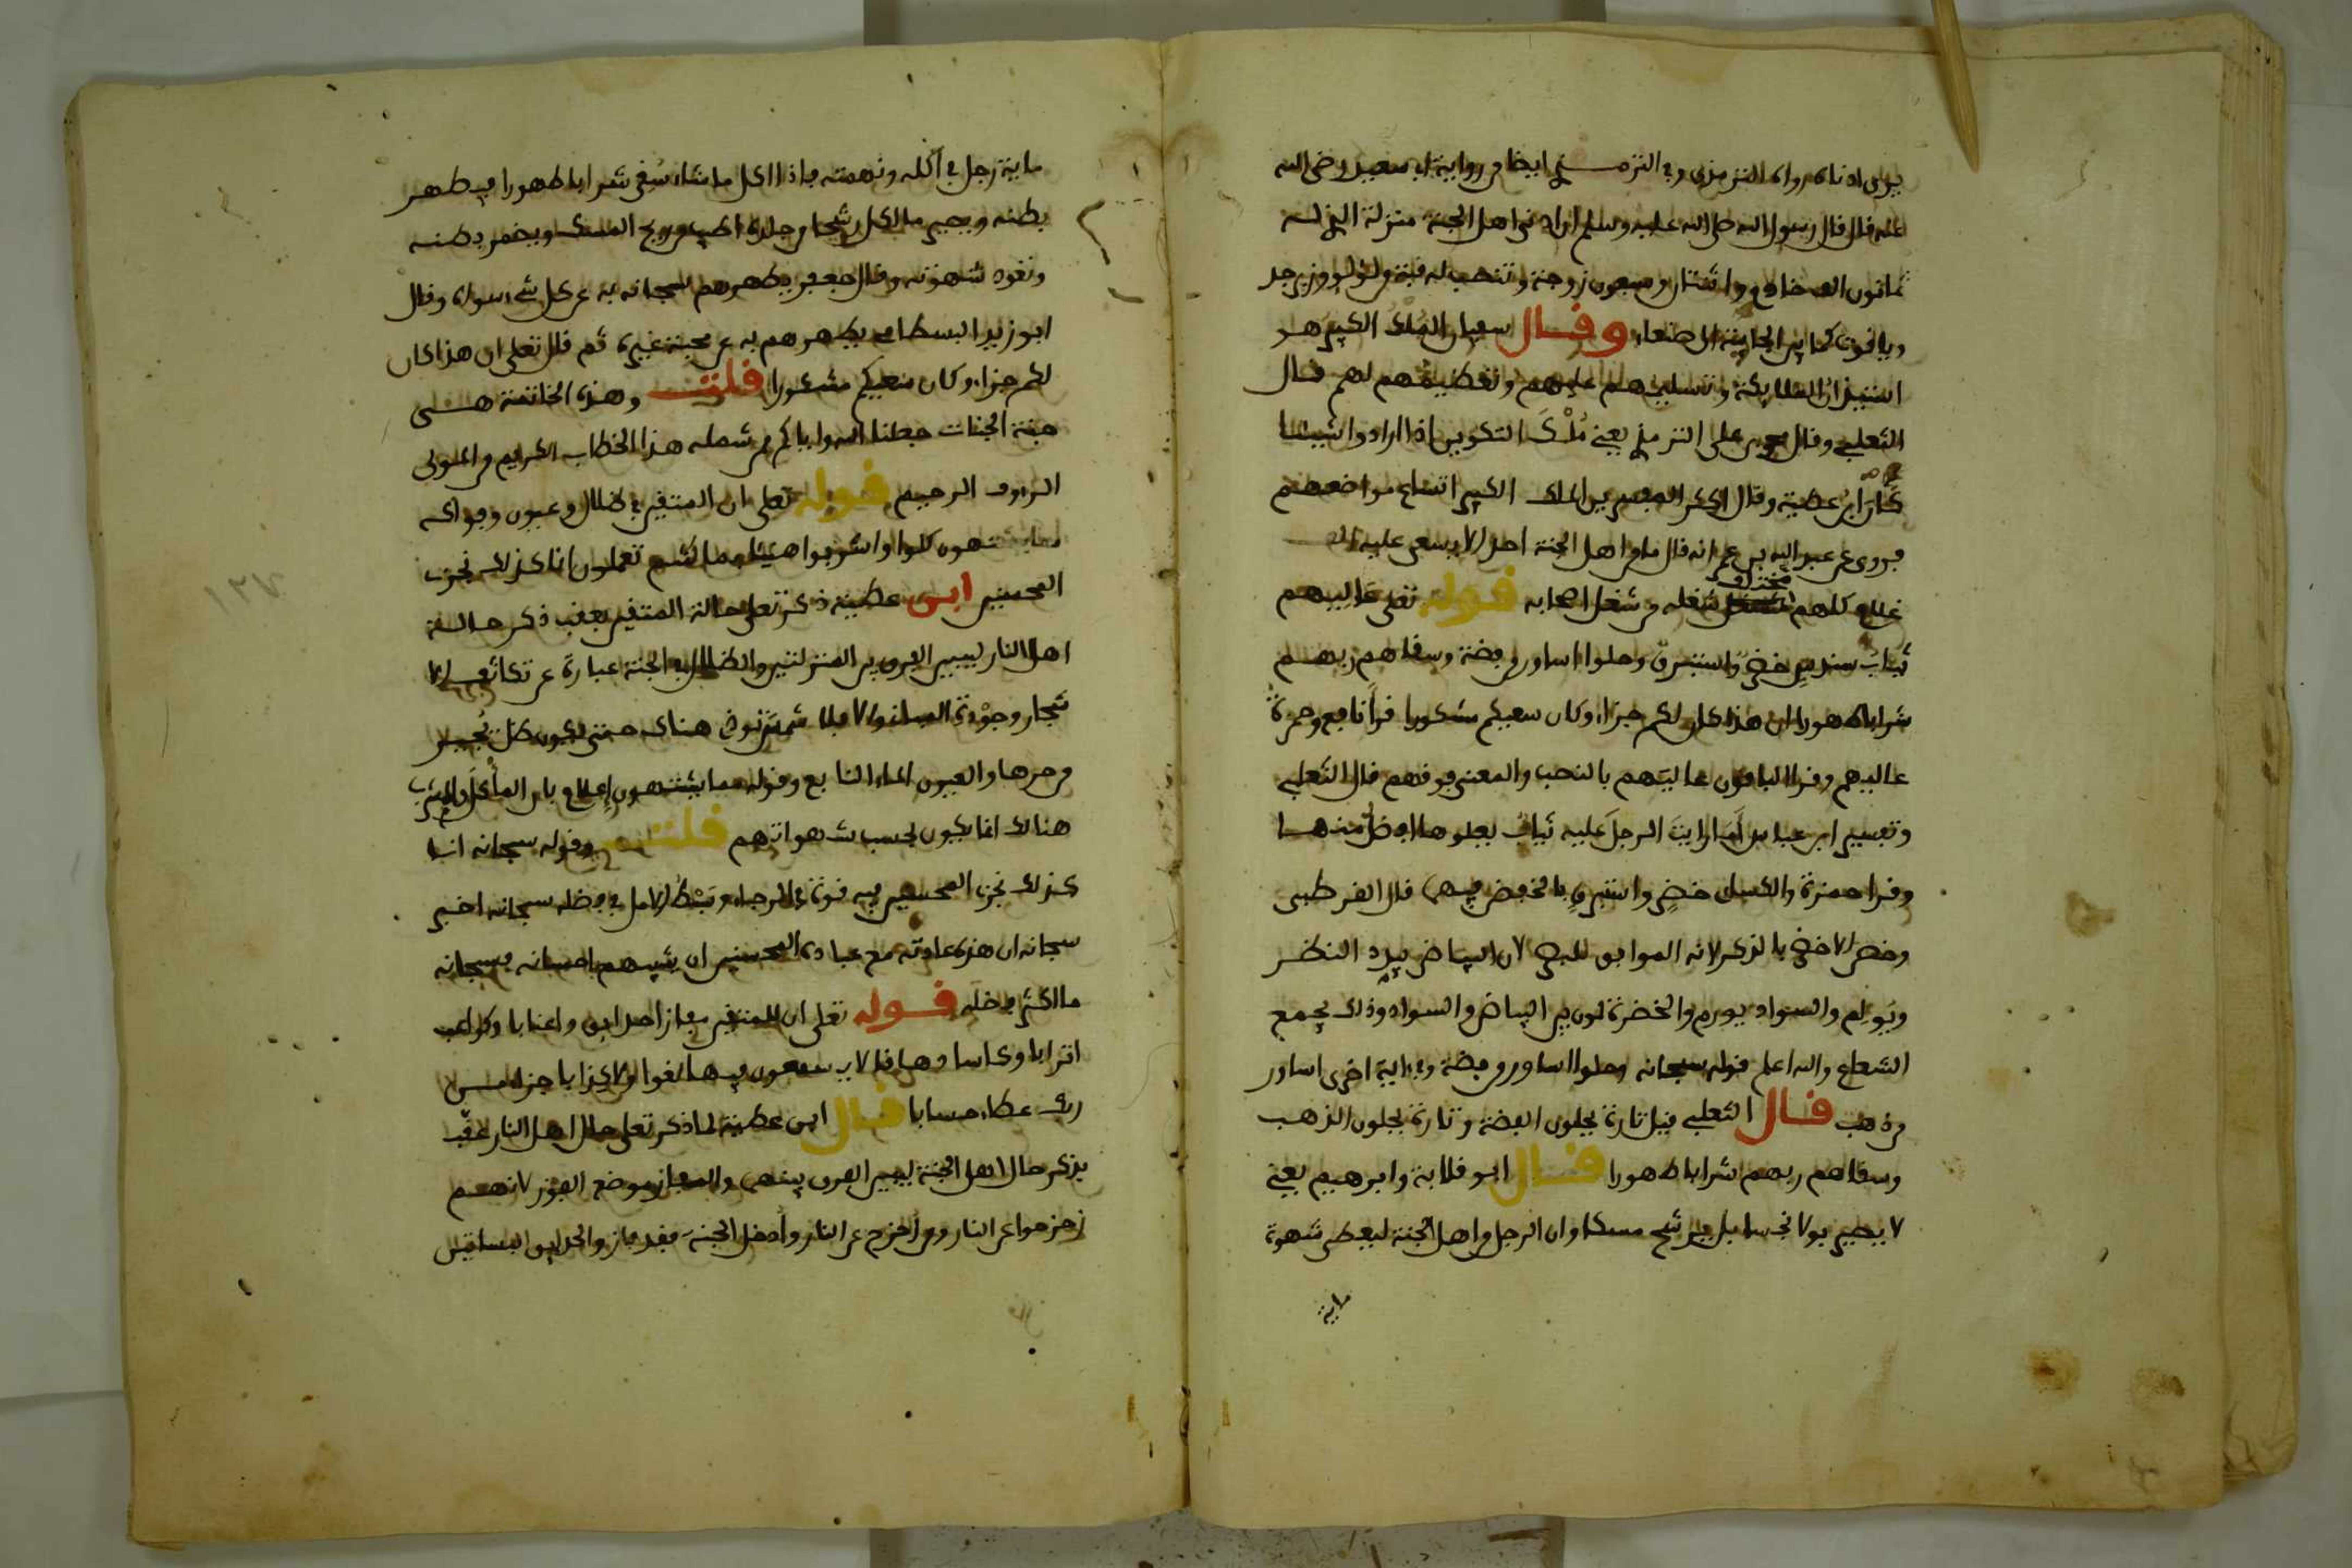 يرى ادناه رواه الترمذي وفي الترمذي ايضا من رواية ابي سعيد رضي الله
عنه قال قال رسول الله صلى الله عليه وسلم ان ادنى اهل الجنة منزلة الذي له
ثمانون الف خادم واثنتان وسبعون زوجة وتنصب له قبة من لؤلؤ وزبرجد
وياقوت كما بين الجابية الى صنعاء وقال سفيان الملك الكبير هو
استيذان الملايكة وتسليمهم عليهم وتعظيمهم لهم قال
الثعلبي وقال محمد بن علي الترمذي يعني ملك التكوين اذا ارادوا شيئا
كان ابن عطية وقال اكثر المفسرين الملك الكبير اتساع مواضعهم
فروي عن عبد الله بن عمر انه قال ما من اهل الجنة احد الا يسعى عليه الف
غلام كلهم مختلف شغله من شغل اصحابه قوله تعلى عاليهم
ثياب سندس خضر واستبرق وحلوا اساور من فضة وسقاهم ربهم
شرابا طهورا ان هذا كان لكم جزاء وكان سعيكم مشكورا قرأ نافع وحمزة
عاليهم وقرأ الباقون عاليهم بالنصب والمعنى فوقهم قال الثعلبي
وتفسير ابن عباس اما رايت الرجل عليه ثياب يعلوها افضل منها
وقرا حمزة والكسائي خضر واستبرق بالخفض فيهما قال القرطبي
وخص الاخضر بالذكر لانه الموافق للبصر لان البياض يبدد النظر
ويولم والسواد يورم والخضرة لون بين البياض والسواد وذلك يجمع
الشعاع والله اعلم قوله سبحانه وحلوا اساور من فضة وفي اية اخرى اساور
من ذهب قال الثعلبي قيل تارة يحلون الفضة وتارة يحلون الذهب
وسقاهم ربهم شرابا طهورا قال ابو قلابة وابرهيم يعني
لا يصير بولا نجسا بل يرشح مسكا وان الرجل من اهل الجنة ليعطى شهوة
ماية
ماية رجل في اكله ونهمته فاذا اكل ما شاء سقي شرابا طهورا فيطهر
بطنه ويصير ما اكل رشحا من جلده اطيب من ريح المسك ويضمر بطنه
وتعود شهوته وقال جعفر يطهرهم سبحانه به عن كل شيء سواه وقال
ابو زيد البسطامي يطهرهم به عن محبة غيره ثم قال تعلى ان هذا كان
لكم جزاء وكان سعيكم مشكورا قلت وهذه الخاتمة هي
جنة الجنات جعلنا الله واياكم ممن شمله هذا الخطاب الكريم من المولى
الرءوف الرحيم قوله تعلى ان المتقين في ظلال وعيون وفواكه
مما يشتهون كلوا واشربوا هنيئا بما كنتم تعملون انا كذلك نجزي
المحسنين ابن عطية ذكر تعلى حالة المتقين بعقب ذكر حالة
اهل النار ليبين الفرق بين المنزلتين والظلال في الجنة عبارة عن تكاثف الا
شجار وجودة المباني والا فلا شمس تؤذي هناك حتى يكون ظل يجير
من حرها والعيون الماء النابع وقوله مما يشتهون إعلام بان المأكل والمشرب
هنالك انما يكون بحسب شهواتهم قلت وقوله سبحانه انا
كذلك نجزي المحسنين فيه قوة في الرجاء وبسط الامل في فضله سبحانه اخبر
سبحانه ان هذه عادته مع عباده المحسنين ان يثيبهم باحسانه فسبحانه
ما اكثر فضله قوله تعلى ان للمتقين مفازا حدايق واعنابا وكواعب
اترابا وكاسا دهاقا لا يسمعون فيها لغوا ولا كذابا جزاء من
ربك عطاء حسابا قال ابن عطية لما ذكر تعلى حال اهل النار عقب
بذكر حال اهل الجنة ليبين الفرق بينهما والمفاز موضع الفوز لانهم
زحزحوا عن النار ومن زحزح عن النار وأدخل الجنة فقد فاز والحدايق البساتين